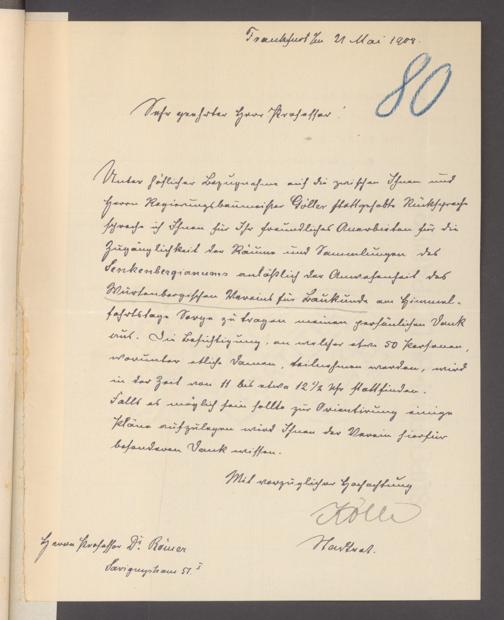 Frankfurt a/M 21 Mai 1908.
80
Sehr geehrter Herr Professor!
Unter höflicher Bezugnahme auf die zwischen Ihnen und
Herrn Regierungsbaumeister Göller stattgehabte Rücksprache
spreche ich Ihnen für Ihr freundliches Anerbieten für die
Zugänglichkeit der Räume und Sammlungen des
Senkenbergianums anläßlich der Anwesenheit des
Würtenbergischen Vereins für Baukunde am Himmel-
fahrtstage Sorge zu tragen meinen persönlichen Dank
aus. Die Besichtigung, an welcher etwa 50 Personen,
worunter etliche Damen, teilnehmen werden, wird
in der Zeit von 11 bis etwa 12 1/2 Uhr stattfinden.
Falls es möglich sein sollte zur Orientirung einige
Pläne aufzulegen wird Ihnen der Verein hierfür
besonderen Dank wissen.
Mit vorzüglicher Hochachtung
Kölle
Stadtrat.
Herrn Professor Dr. Römer
51. I